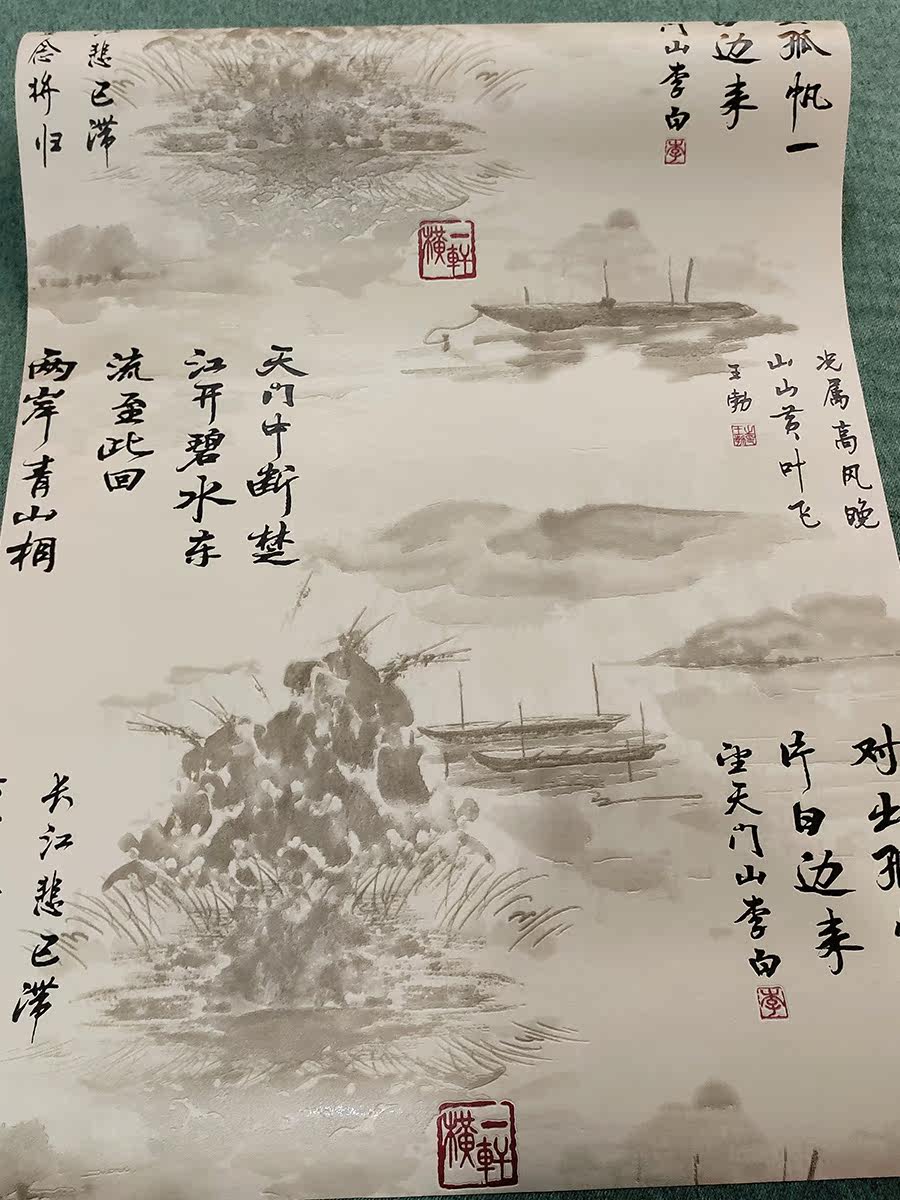 孤帆一
白边来
门山李白
李
悲已滞
念将归
一軒
横
天门中断楚
江开碧水东
流至此回
两岸青山相
况属高风晚
山山黄叶飞
王勃
对出孤
片白边来
望天门山李白
李
长江悲已滞
一軒
横